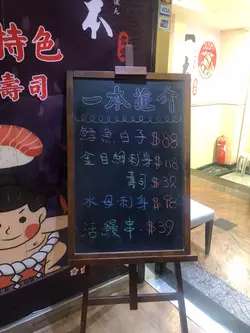 不
特色
壽司
一本推介
鱈魚白子 $88
金目鯛刺身 $118
壽司 $32
水母刺身 $18
活鰻串 $39